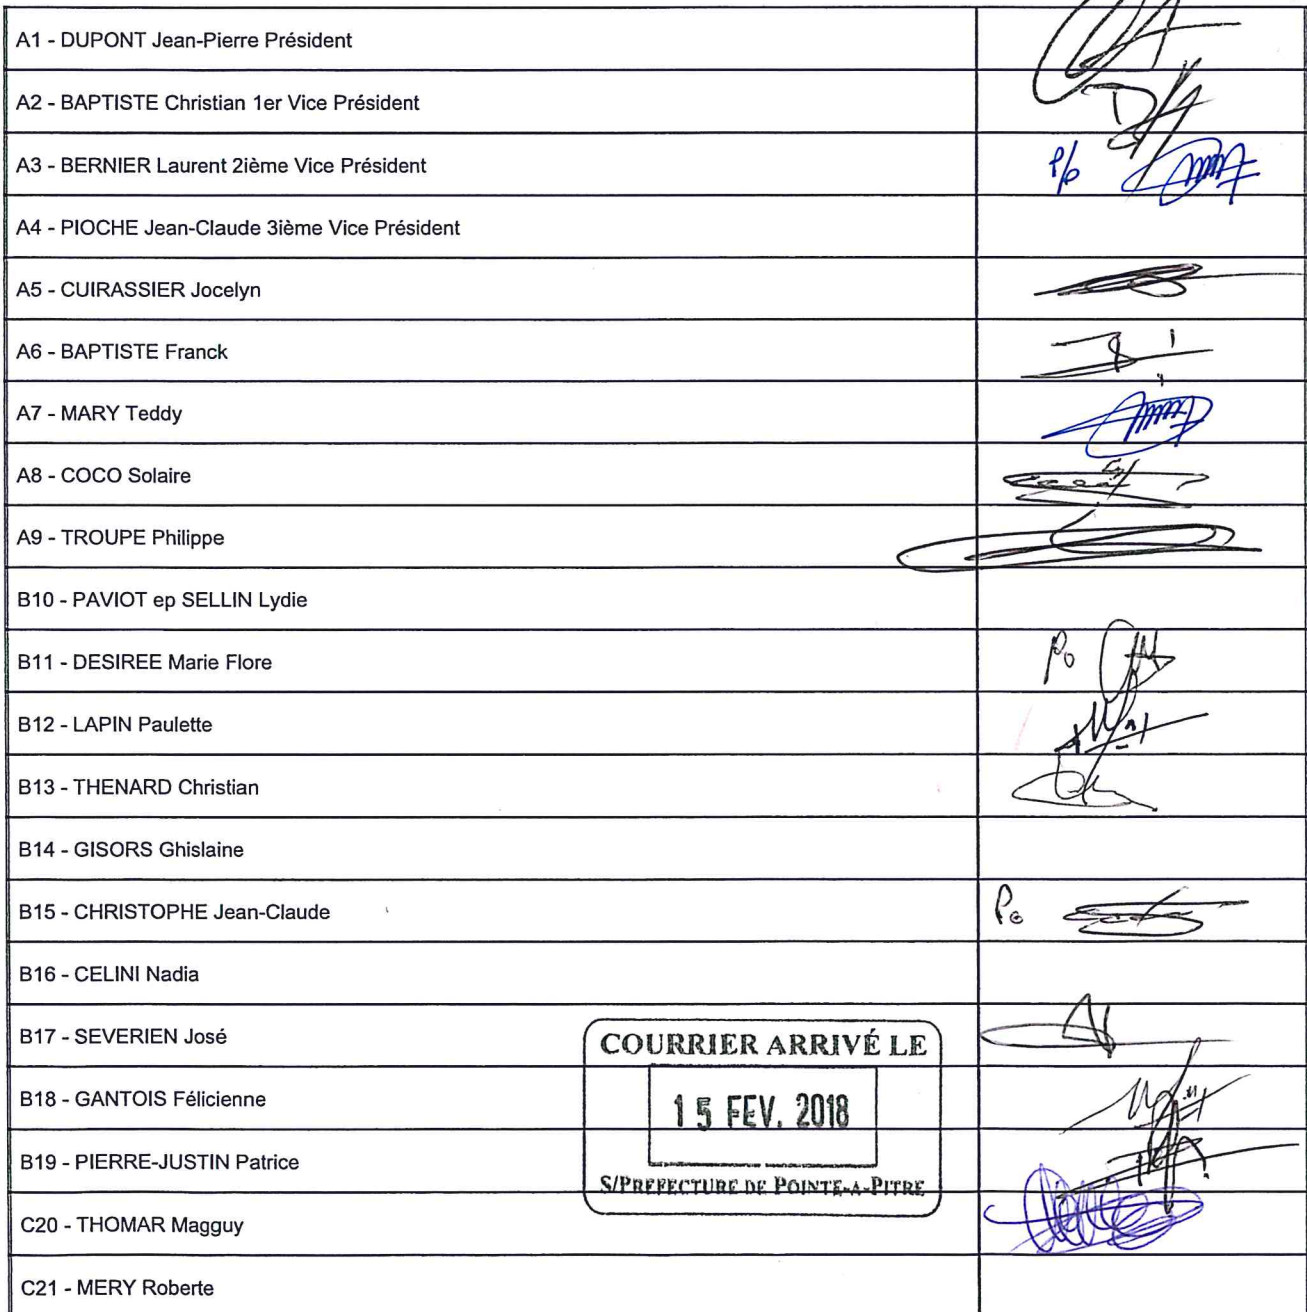 A1 - DUPONT Jean-Pierre Président
A2 - BAPTISTE Christian 1er Vice Président
A3 - BERNIER Laurent 2ième Vice Président
P/o
A4 - PIOCHE Jean-Claude 3ième Vice Président
A5 - CUIRASSIER Jocelyn
A6 - BAPTISTE Franck
A7 - MARY Teddy
A8 - COCO Solaire
A9 - TROUPE Philippe
B10 - PAVIOT ep SELLIN Lydie
B11 - DESIREE Marie Flore
Po
B12 - LAPIN Paulette
B13 - THENARD Christian
B14 - GISORS Ghislaine
B15 - CHRISTOPHE Jean-Claude
Po
B16 - CELINI Nadia
B17 - SEVERIEN José
COURRIER ARRIVÉ LE
B18 - GANTOIS Félicienne
15 FEV. 2018
B19 - PIERRE-JUSTIN Patrice
S/PREFECTURE DE POINTE-A-PITRE
C20 - THOMAR Magguy
C21 - MERY Roberte